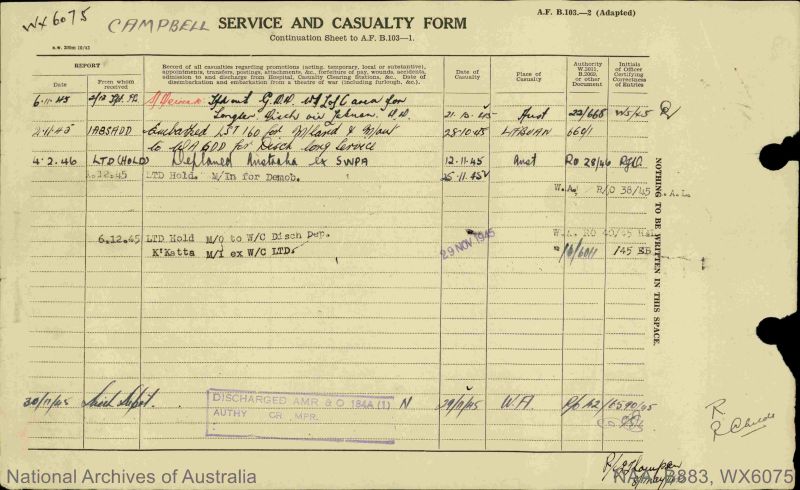 WX6075
CAMPBELL
SERVICE AND CASUALTY FORM
Continuation Sheet to A.F. B.103—1.
A.F. B.103.—2 (Adapted)
REPORT
Date
From whom received
Record of all casualties regarding promotions (acting, temporary, local or substantive), appointments, transfers, postings, attachments, &c., forfeiture of pay, wounds, accidents, admission to and discharge from Hospital, Casualty Clearing Stations, &c. Date of disembarkation and embarkation from a theatre of war (including furlough, &c.).
Date of Casualty
Place of Casualty
Authority W.3011, B.2069, or other Document
Initials of Officer Certifying Correctness of Entries
6.11.45 2/12 G.D.D. L of C area for
Aust 22/665
IABSADD Embarked LST 160 for 28.10.45 LABUAN 660/1
to WA GDD for Disch long service
4.2.46 LTD (HOLD) Deplaned Australia ex SWPA 12.11.45 Aust RO 28/46
.12.45 LTD Hold. M/In for Demob. 15.11.45 W.A. R/O 38/45 S.A.L.
6.12.45 LTD Hold M/O to W/C Disch Dep. 29 NOV 1945 W.A. RO 40/45
K'Katta M/I ex W/C LTD. /45 EB
NOTHING TO BE WRITTEN IN THIS SPACE.
30/11/45 Disch Depot. DISCHARGED AMR & O 184A (1) N 29/11/45 W.A.
AUTHY GR MPR.
National Archives of Australia
NAA: B883, WX6075